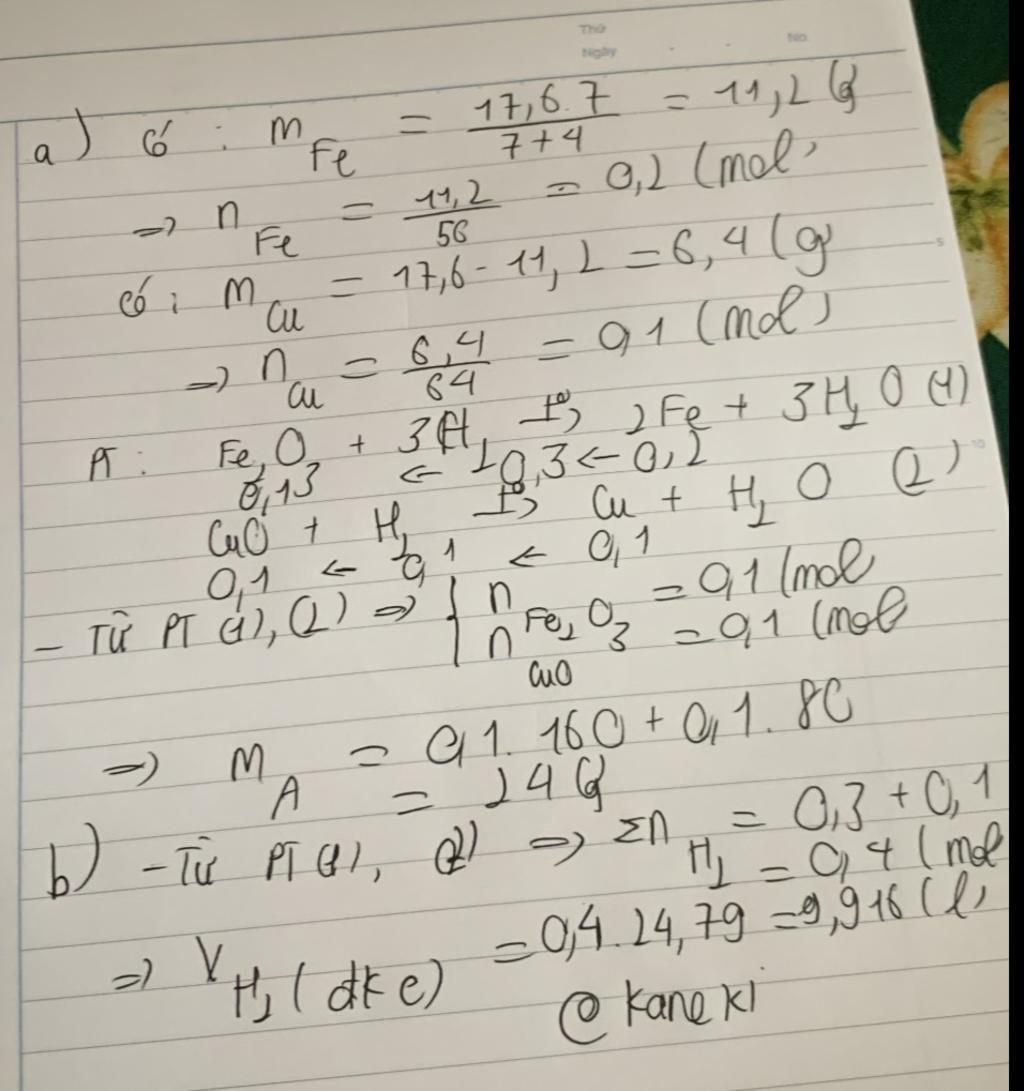 Thứ
Ngày No.
a) Có : m Fe = 17,6.7 / 7+4 = 11,2 (g)
=> n Fe = 11,2 / 56 = 0,2 (mol)
Có : m Cu = 17,6 - 11,2 = 6,4 (g)
=> n Cu = 6,4 / 64 = 0,1 (mol)
PT : Fe2O3 + 3H2 -t°-> 2Fe + 3H2O (1)
0,1 ← 0,3 ← 0,2
CuO + H2 -t°-> Cu + H2O (2)
0,1 ← 0,1 ← 0,1
- Từ PT (1), (2) => { n Fe2O3 = 0,1 (mol
n CuO = 0,1 (mol
=> m A = 0,1. 160 + 0,1. 80
= 24 (g)
b) - Từ PT (1), (2) => Σn H2 = 0,3 + 0,1
= 0,4 (mol
=> V H2 (đkc) = 0,4. 24,79 = 9,916 (l)
@ kaneki